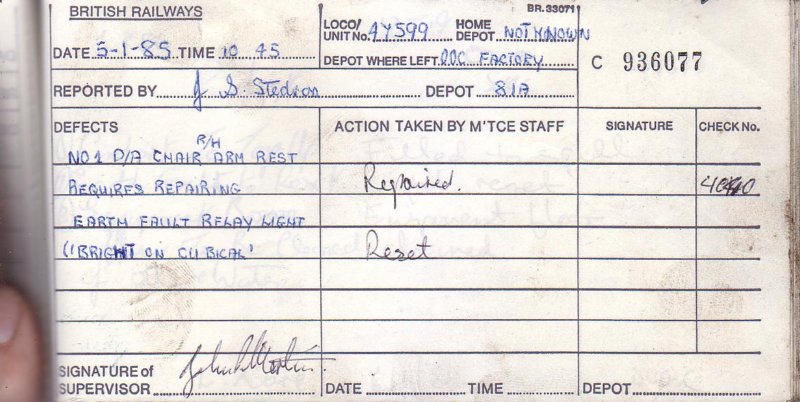 BRITISH RAILWAYS
BR.33071
LOCO/ UNIT No. 47599 HOME DEPOT NOT KNOWN
DATE 5-1-85 TIME 10 45
DEPOT WHERE LEFT OOC FACTORY
C 936077
REPORTED BY J S. DEPOT 81A
DEFECTS ACTION TAKEN BY M'TCE STAFF SIGNATURE CHECK No.
R/H
NO1 D/A CHAIR ARM REST
REQUIRES REPAIRING Repaired.
EARTH FAULT RELAY LIGHT
("BRIGHT ON CUBICAL" Reset
SIGNATURE of SUPERVISOR DATE TIME DEPOT